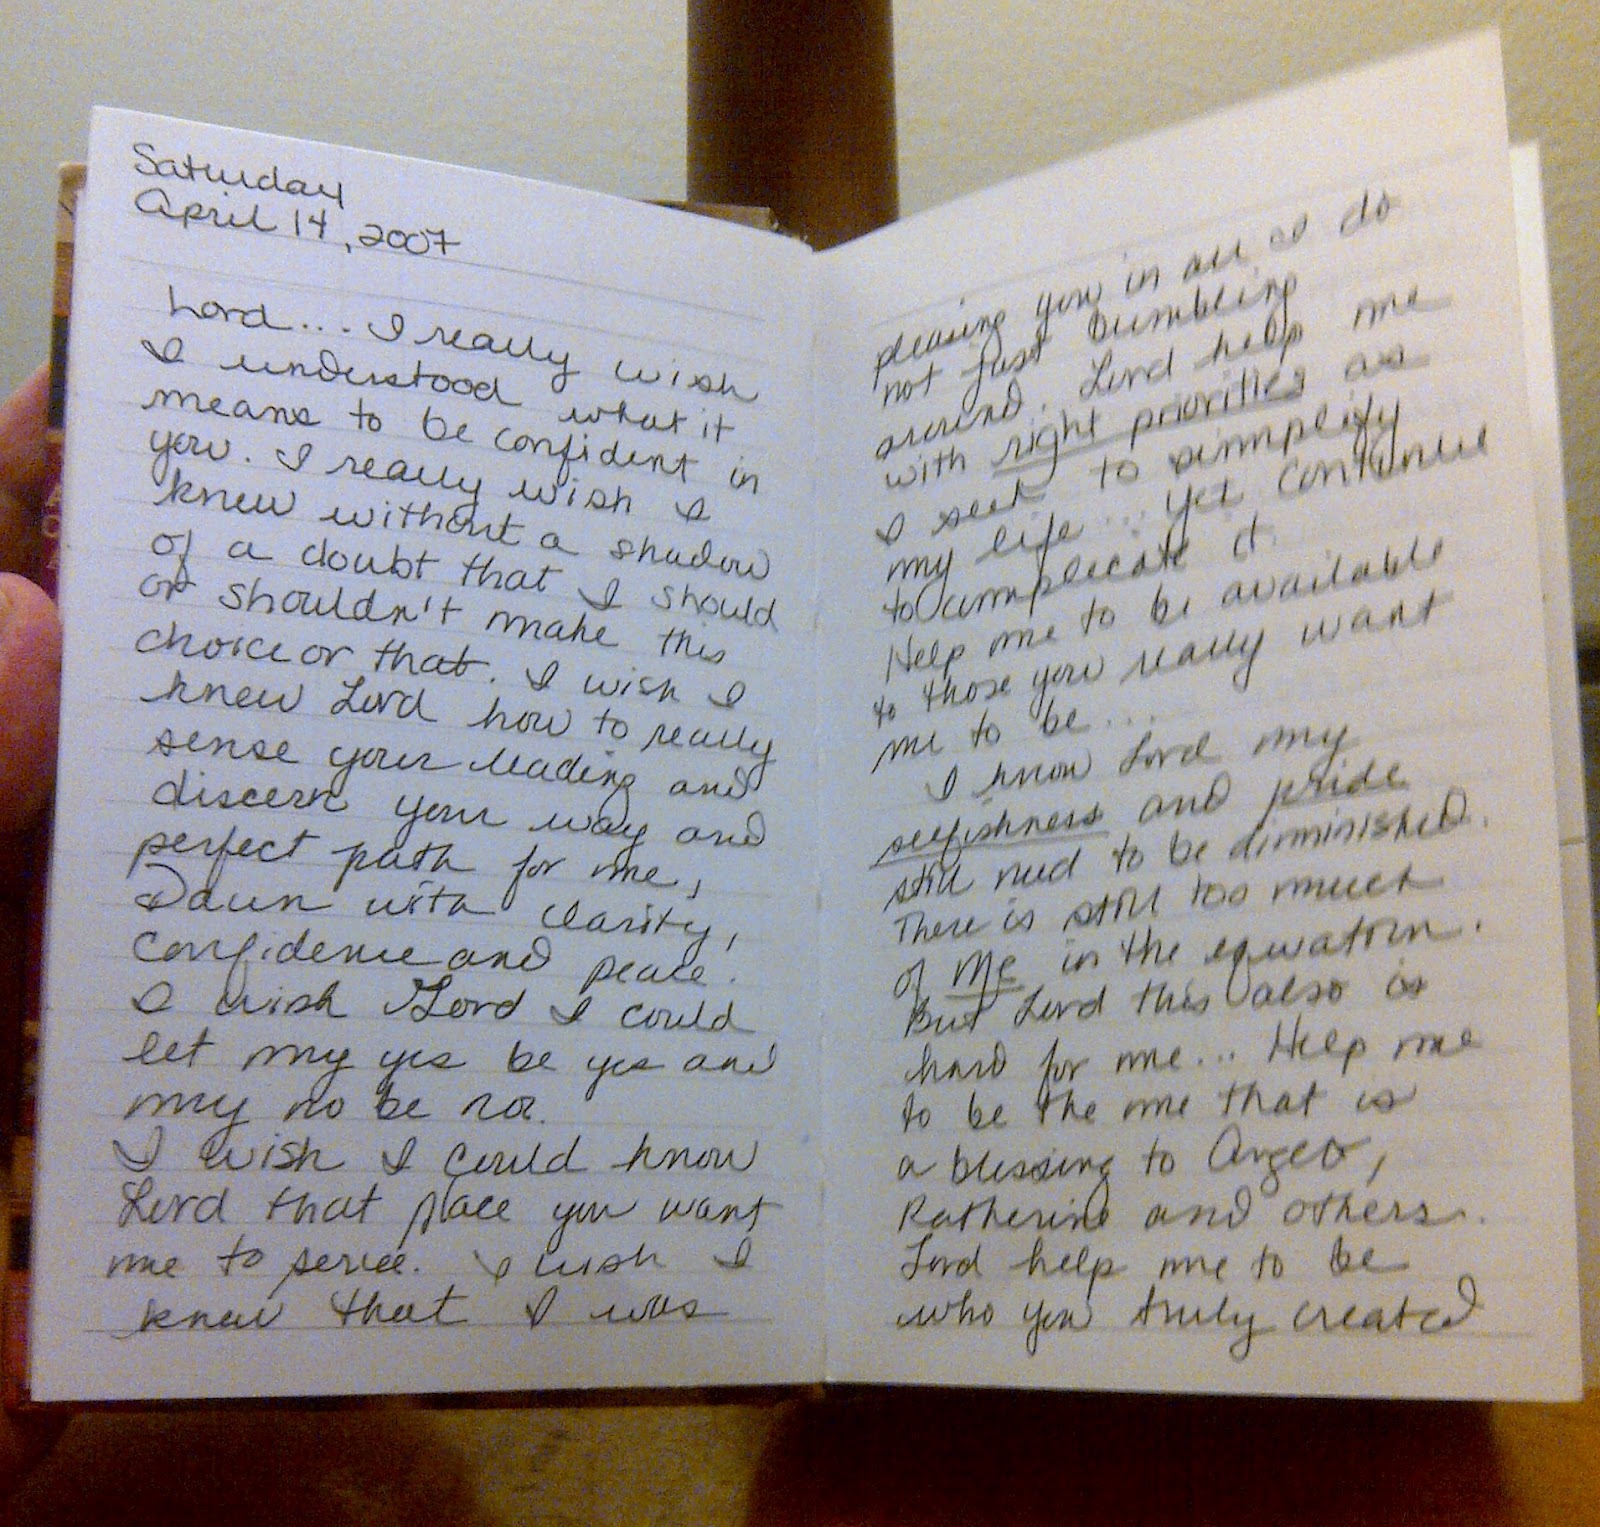 Saturday
April 14, 2007
Lord... I really wish
I understood what it
means to be confident in
you. I really wish I
knew without a shadow
of a doubt that I should
or shouldn't make this
choice or that. I wish I
knew Lord how to really
sense your leading and
discern your way and
perfect path for me,
Dawn with clarity,
confidence and peace.
I wish Lord I could
let my yes be yes and
my no be no.
I wish I could know
Lord that place you want
me to serve. I wish I
knew that I was
pleasing you in all I do
not just bumbling
around. Lord help me
with right priorities as
I seek to simplify
my life... yet continue
to complicate it.
Help me to be available
to those you really want
me to be...
I know Lord my
selfishness and pride
still need to be diminished.
There is still too much
of Me in the equation.
But Lord this also is
hard for me... Help me
to be the me that is
a blessing to
Katherine and others.
Lord help me to be
who you truly created